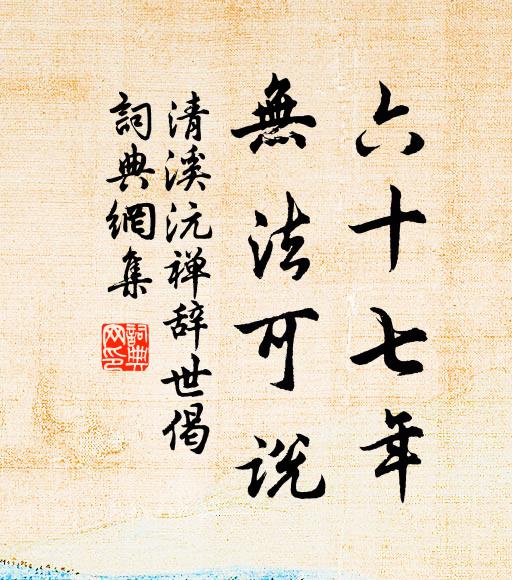 六十七年
無法可説
清溪沅禅辞世偈
詞典網集
詞典網印